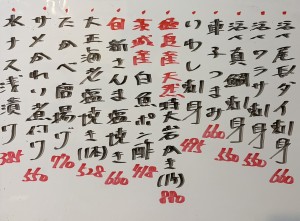 活〆尾長ダイ刺身 660
活〆ワラサ刺身 550
活〆真鯛刺身 550
車子つまみ 660
いわし刺身 495
徳島産天然特大岩かき(1ヶ) 880
茨城産白魚ポン酢 418
旬 新さんま塩焼き 660
大正海老塩焼き(1本) 528
たかべ唐揚げ 770
サメかれい煮付け 550
水ナス浅漬け 385